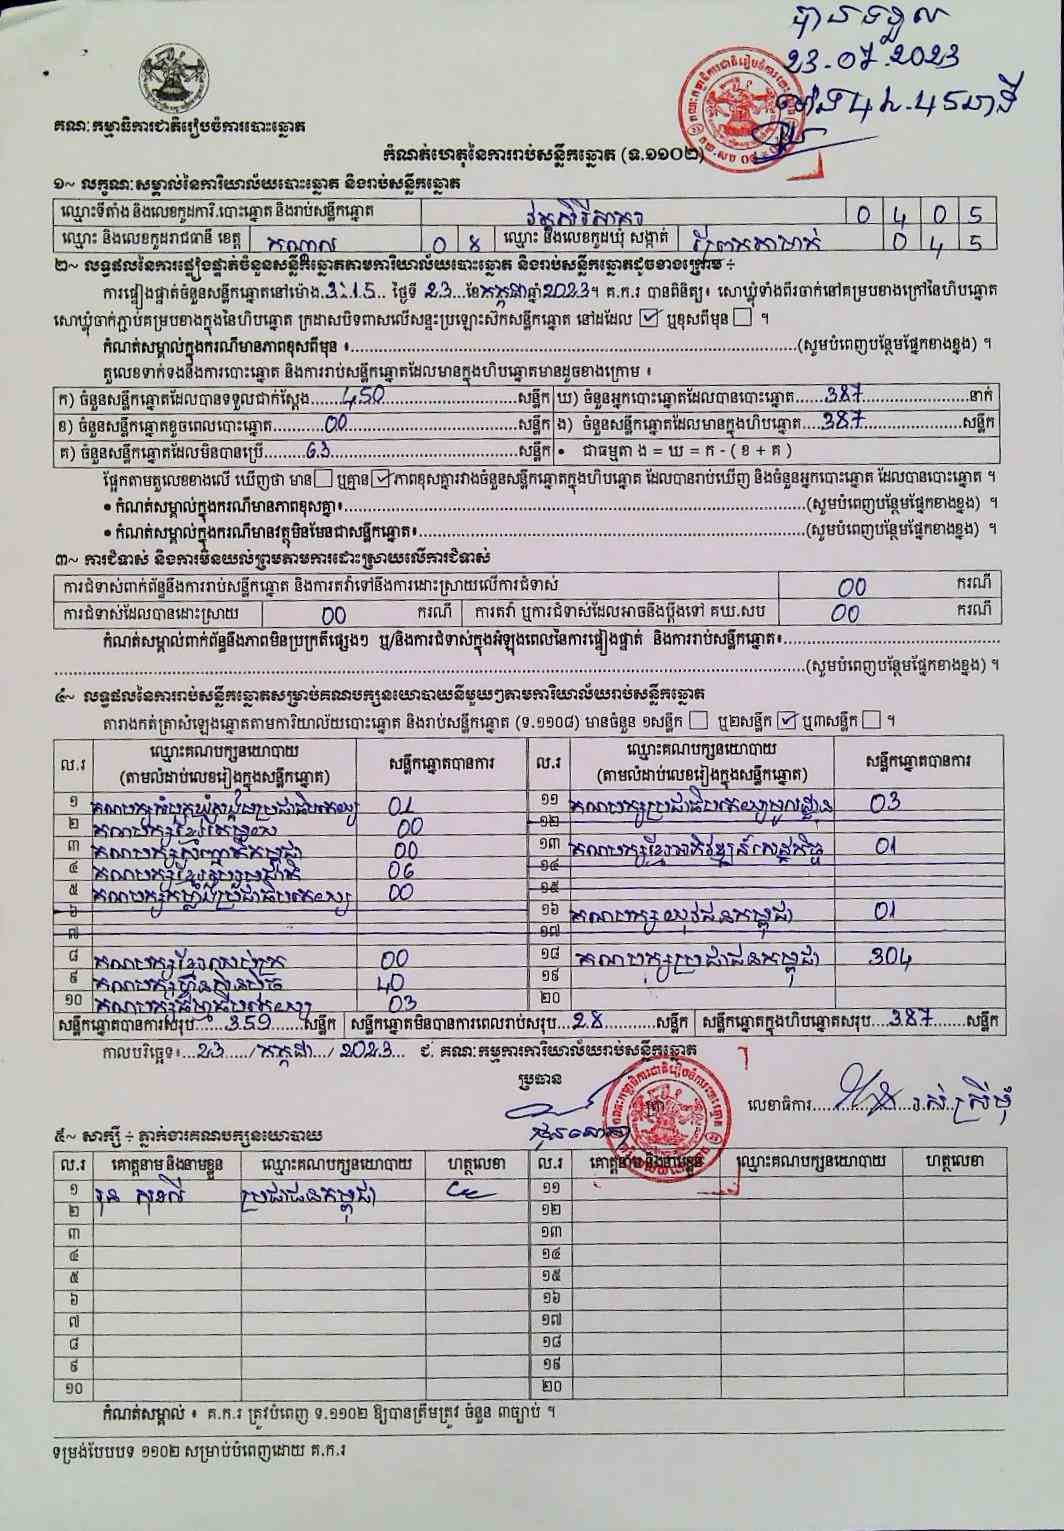 បានទទួល
23.07.2023
ម៉ោង 4 និង 45 នាទី
គណៈកម្មាធិការជាតិរៀបចំការបោះឆ្នោត
កំណត់ហេតុនៃការរាប់សន្លឹកឆ្នោត (ទ.១១០២)
១~ លក្ខណៈសម្គាល់នៃការិយាល័យបោះឆ្នោត និងរាប់សន្លឹកឆ្នោត
ឈ្មោះទីតាំង និងលេខកូដការិ.បោះឆ្នោត និងរាប់សន្លឹកឆ្នោត 0 4 0 5
ឈ្មោះ និងលេខកូដរាជធានី ខេត្ត កណ្តាល 0 8 ឈ្មោះ និងលេខកូដឃុំ សង្កាត់ 0 4 5
២~ លទ្ធផលនៃការផ្ទៀងផ្ទាត់ចំនួនសន្លឹកឆ្នោតតាមការិយាល័យបោះឆ្នោត និងរាប់សន្លឹកឆ្នោតដូចខាងក្រោម ÷
ការផ្ទៀងផ្ទាត់ចំនួនសន្លឹកឆ្នោតនៅម៉ោង 3:15 ថ្ងៃទី 23 ខែ កក្កដា ឆ្នាំ 2023។ គ.ក.រ បានពិនិត្យ៖ សោឃ្លុំទាំងពីរចាក់នៅគម្របខាងក្រៅនៃហិបឆ្នោត
សោឃ្លុំចាក់ភ្ជាប់គម្របខាងក្នុងនៃហិបឆ្នោត ក្រដាសបិទពាសលើសន្ទះប្រឡោះស៊កសន្លឹកឆ្នោត នៅដដែល ☑ ឬខុសពីមុន ☐ ។
កំណត់សម្គាល់ក្នុងករណីមានភាពខុសពីមុន ៖......(សូមបំពេញបន្ថែមផ្នែកខាងខ្នង) ។
តួលេខទាក់ទងនឹងការបោះឆ្នោត និងការរាប់សន្លឹកឆ្នោតដែលមានក្នុងហិបឆ្នោតមានដូចខាងក្រោម ៖
ក) ចំនួនសន្លឹកឆ្នោតដែលបានទទួលជាក់ស្តែង......450......សន្លឹក ឃ) ចំនួនអ្នកបោះឆ្នោតដែលបានបោះឆ្នោត......387......នាក់
ខ) ចំនួនសន្លឹកឆ្នោតខូចពេលបោះឆ្នោត......00......សន្លឹក ង) ចំនួនសន្លឹកឆ្នោតដែលមានក្នុងហិបឆ្នោត......387......សន្លឹក
គ) ចំនួនសន្លឹកឆ្នោតដែលមិនបានប្រើ......63......សន្លឹក • ជាធម្មតា ង = ឃ = ក - ( ខ + គ )
ផ្អែកតាមតួលេខខាងលើ ឃើញថា មាន ☐ ឬគ្មាន ☑ ភាពខុសគ្នារវាងចំនួនសន្លឹកឆ្នោតក្នុងហិបឆ្នោត ដែលបានរាប់ឃើញ និងចំនួនអ្នកបោះឆ្នោត ដែលបានបោះឆ្នោត ។
• កំណត់សម្គាល់ក្នុងករណីមានភាពខុសគ្នា៖......(សូមបំពេញបន្ថែមផ្នែកខាងខ្នង) ។
• កំណត់សម្គាល់ក្នុងករណីមានវត្ថុមិនមែនជាសន្លឹកឆ្នោត៖......(សូមបំពេញបន្ថែមផ្នែកខាងខ្នង) ។
៣~ ការជំទាស់ និងការមិនយល់ព្រមតាមការដោះស្រាយលើការជំទាស់
ការជំទាស់ពាក់ព័ន្ធនឹងការរាប់សន្លឹកឆ្នោត និងការតវ៉ាទៅនឹងការដោះស្រាយលើការជំទាស់ 00 ករណី
ការជំទាស់ដែលបានដោះស្រាយ 00 ករណី ការតវ៉ា ឬការជំទាស់ដែលអាចនឹងប្តឹងទៅ គឃ.សប 00 ករណី
កំណត់សម្គាល់ពាក់ព័ន្ធនឹងភាពមិនប្រក្រតីផ្សេងៗ ឬ/និងការជំទាស់ក្នុងអំឡុងពេលនៃការផ្ទៀងផ្ទាត់ និងការរាប់សន្លឹកឆ្នោត៖......
......(សូមបំពេញបន្ថែមផ្នែកខាងខ្នង) ។
៤~ លទ្ធផលនៃការរាប់សន្លឹកឆ្នោតសម្រាប់គណបក្សនយោបាយនីមួយៗតាមការិយាល័យរាប់សន្លឹកឆ្នោត
តារាងកត់ត្រាសំឡេងឆ្នោតតាមការិយាល័យបោះឆ្នោត និងរាប់សន្លឹកឆ្នោត (ទ.១១០៨) មានចំនួន ១សន្លឹក ☐ ឬ២សន្លឹក ☑ ឬ៣សន្លឹក ☐ ។
ល.រ ឈ្មោះគណបក្សនយោបាយ សន្លឹកឆ្នោតបានការ ល.រ ឈ្មោះគណបក្សនយោបាយ សន្លឹកឆ្នោតបានការ
(តាមលំដាប់លេខរៀងក្នុងសន្លឹកឆ្នោត) (តាមលំដាប់លេខរៀងក្នុងសន្លឹកឆ្នោត)
១ គណបក្សសំបុកឃ្មុំសង្គមប្រជាធិបតេយ្យ 01 ១១ គណបក្សប្រជាធិបតេយ្យមូលដ្ឋាន 03
២ 00 ១២
៣ 00 ១៣ គណបក្សខ្មែរអភិវឌ្ឍន៍សេដ្ឋកិច្ច 01
៤ គណបក្សខ្មែររួបរួមជាតិ 06 ១៤
៥ គណបក្សកម្លាំងប្រជាធិបតេយ្យ 00 ១៥
៦ ១៦ គណបក្សយុវជនកម្ពុជា 01
៧ ១៧
៨ គណបក្សខ្មែរឈប់ក្រ 00 ១៨ គណបក្សប្រជាជនកម្ពុជា 304
៩ គណបក្សហ៊្វុនស៊ិនប៉ិច 40 ១៩
១០ គណបក្សធម្មាធិបតេយ្យ 03 ២០
សន្លឹកឆ្នោតបានការសរុប......359......សន្លឹក សន្លឹកឆ្នោតមិនបានការពេលរាប់សរុប...28......សន្លឹក សន្លឹកឆ្នោតក្នុងហិបឆ្នោតសរុប...387......សន្លឹក
កាលបរិច្ឆេទ៖...23..../កក្កដា.../2023... ជ. គណៈកម្មការការិយាល័យរាប់សន្លឹកឆ្នោត
ប្រធាន
លេខាធិការ......
៥~ សាក្សី ÷ ភ្នាក់ងារគណបក្សនយោបាយ
ល.រ គោត្តនាម និងនាមខ្លួន ឈ្មោះគណបក្សនយោបាយ ហត្ថលេខា ល.រ គោត្តនាម និងនាមខ្លួន ឈ្មោះគណបក្សនយោបាយ ហត្ថលេខា
១ ប្រជាជនកម្ពុជា ១១
២ ១២
៣ ១៣
៤ ១៤
៥ ១៥
៦ ១៦
៧ ១៧
៨ ១៨
៩ ១៩
១០ ២០
កំណត់សម្គាល់ ៖ គ.ក.រ ត្រូវបំពេញ ទ.១១០២ ឱ្យបានត្រឹមត្រូវ ចំនួន ៣ច្បាប់ ។
ទម្រង់បែបបទ ១១០២ សម្រាប់បំពេញដោយ គ.ក.រ